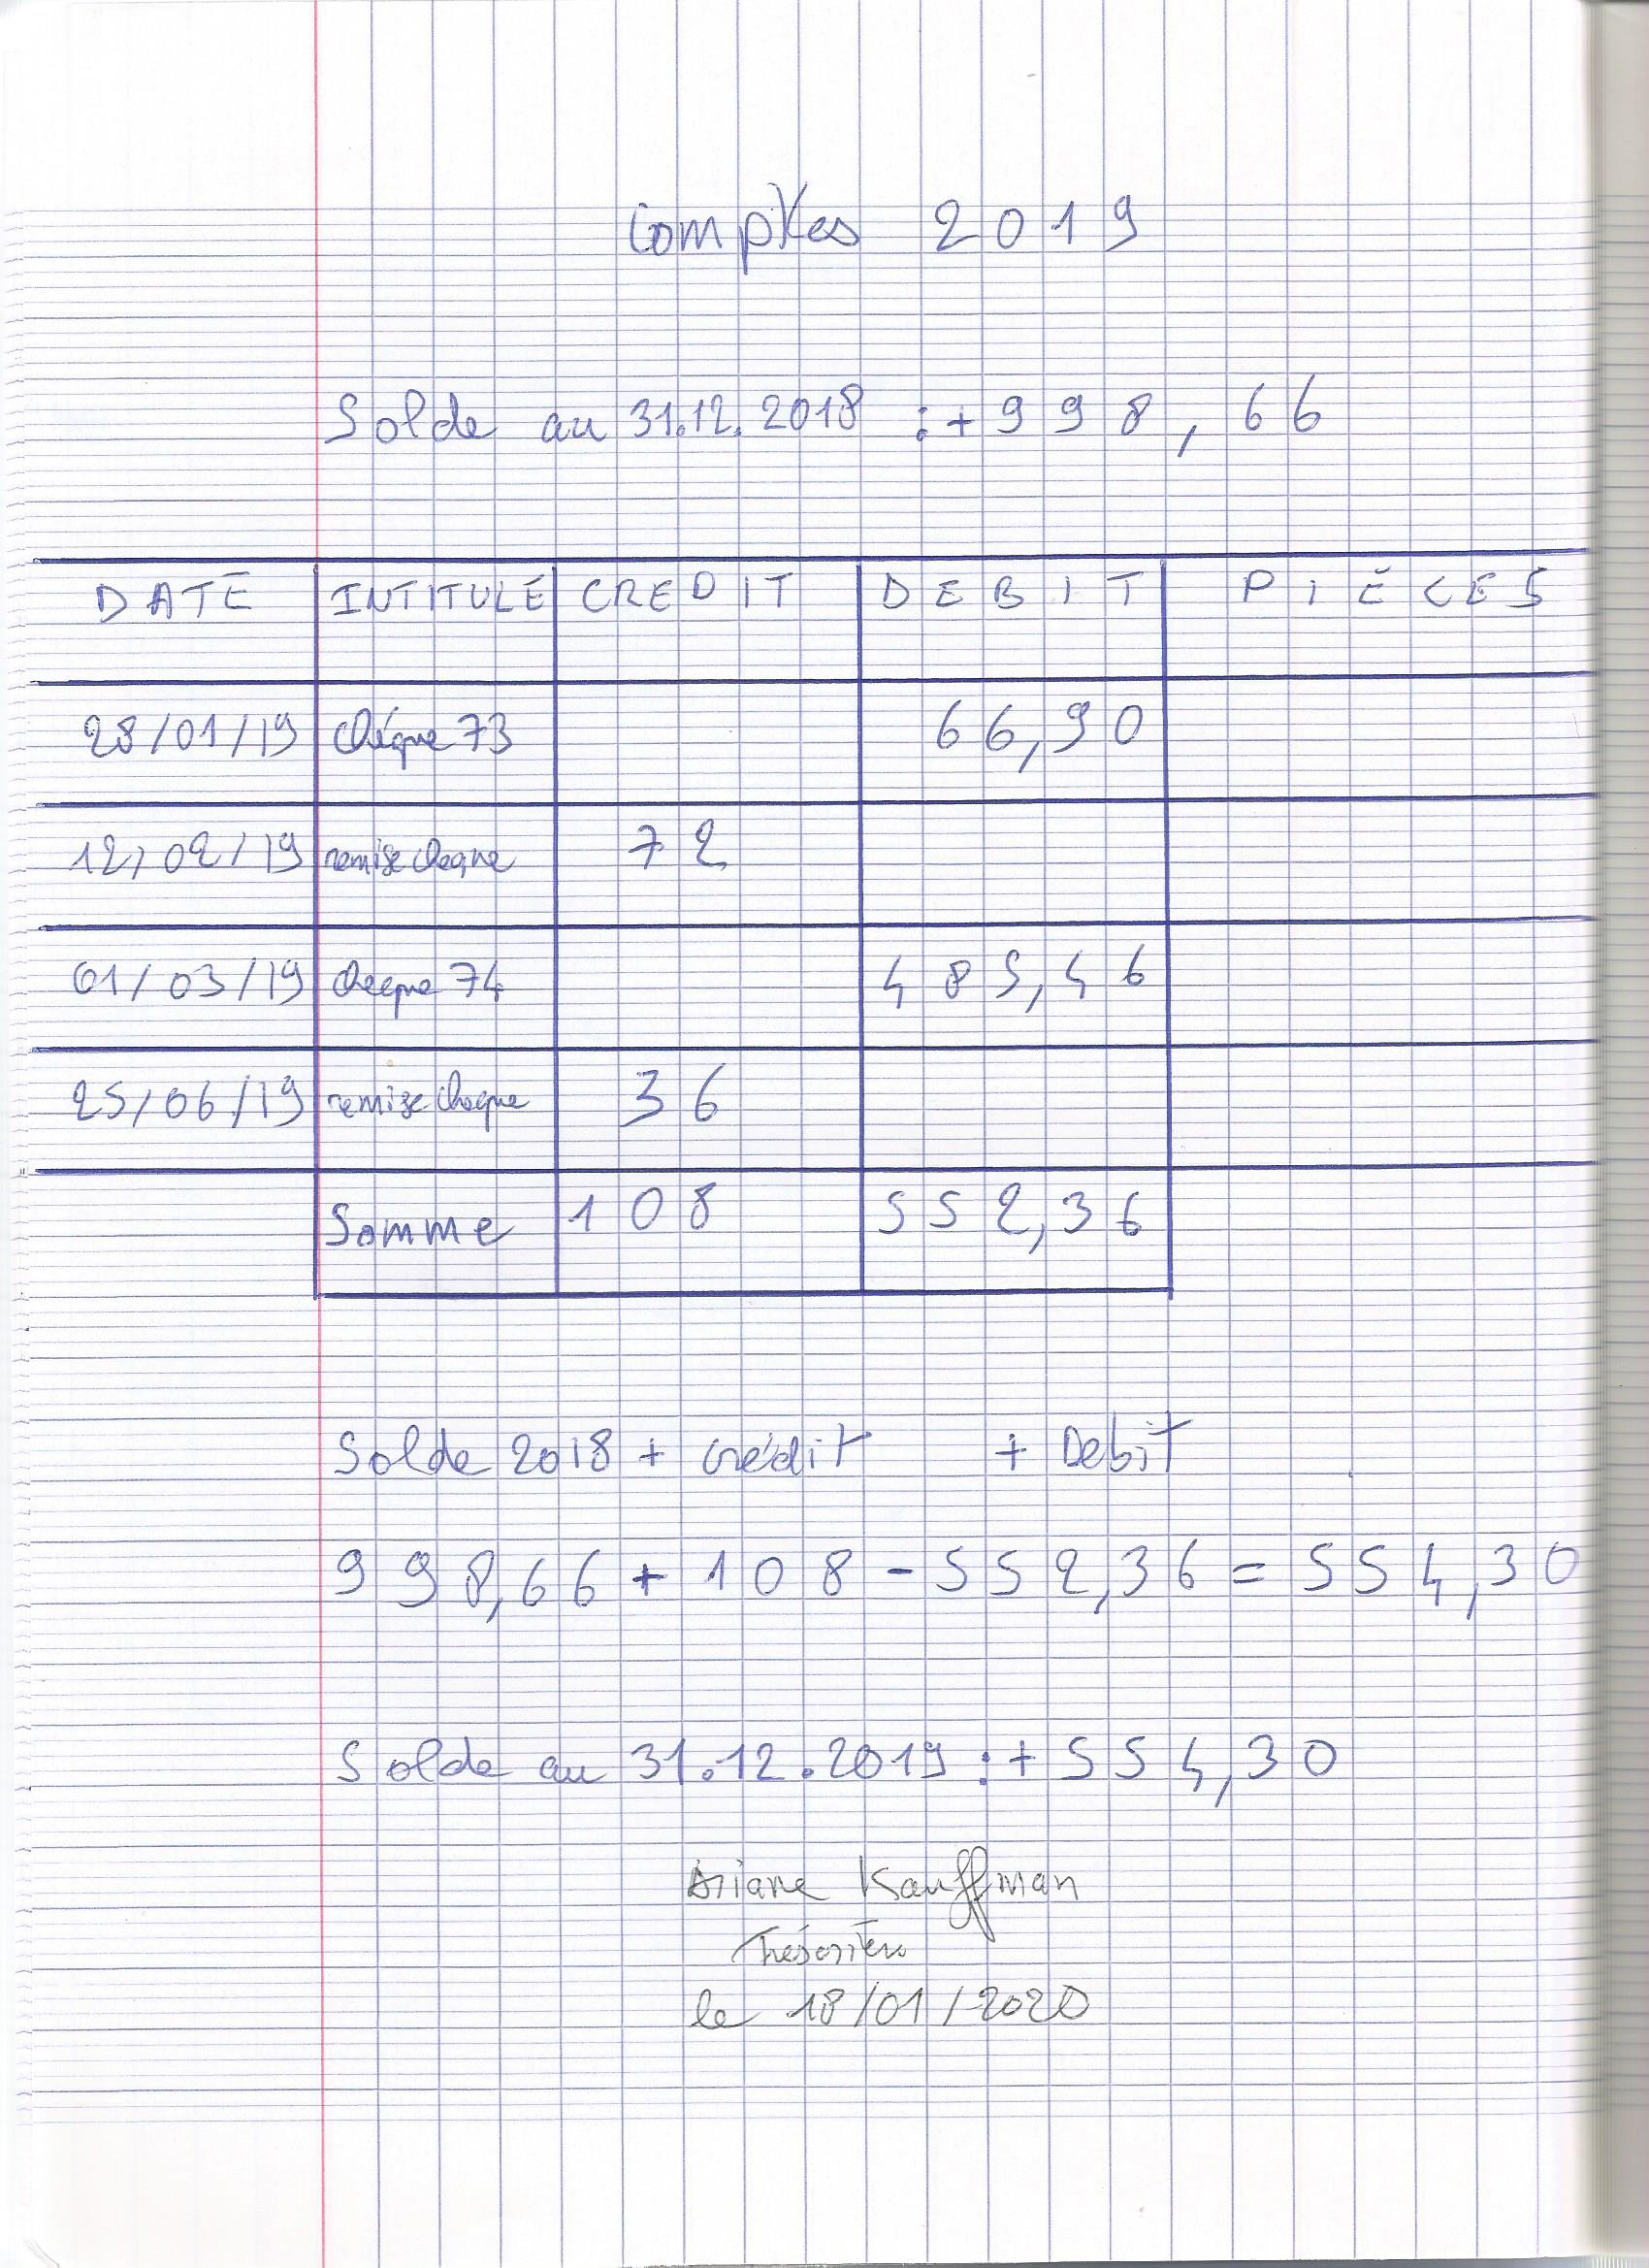 Comptes 2019
Solde au 31.12.2018 : + 998,66
DATE INTITULÉ CREDIT DEBIT PIÈCES
28/01/19 chéque 73 66,90
12/02/19 remise cheque 72
01/03/19 cheque 74 485,46
25/06/19 remise cheque 36
Somme 108 552,36
Solde 2018 + crédit + Debit
998,66 + 108 - 552,36 = 554,30
Solde au 31.12.2019 : + 554,30
Ariane Kauffman
Trésorière
le 18/01/2020